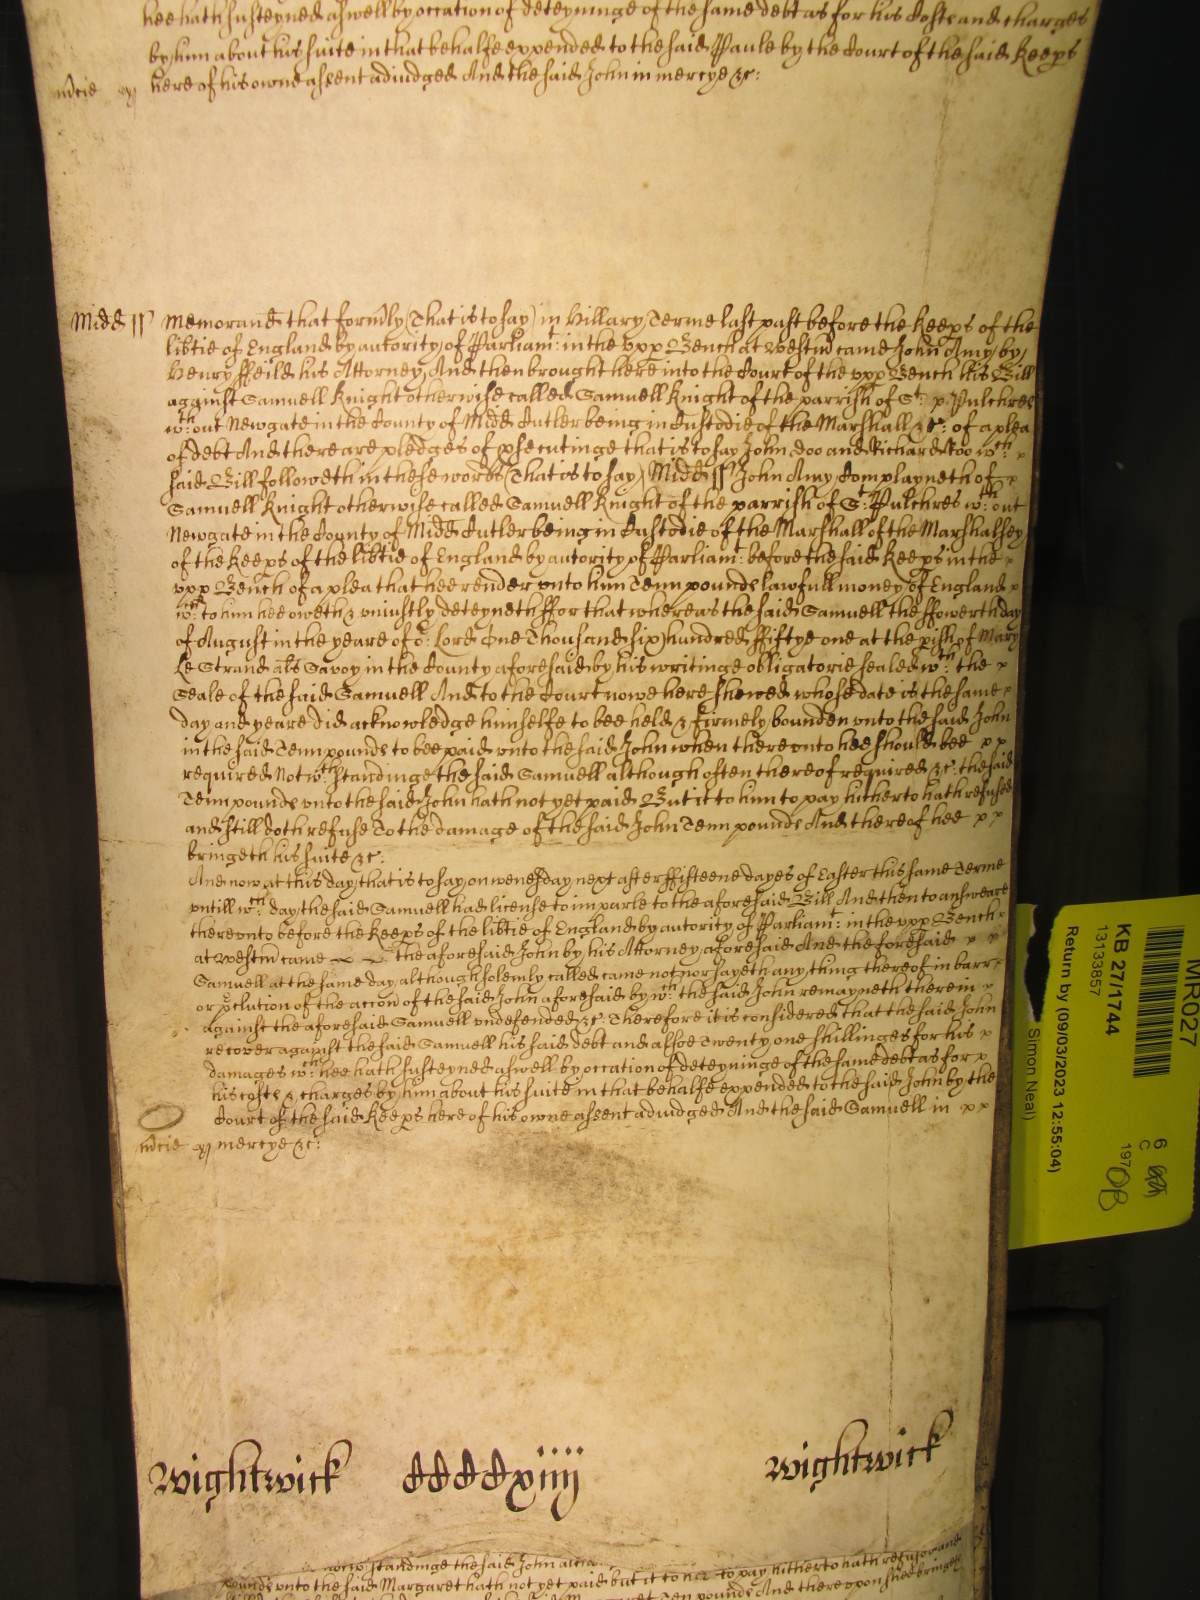 hee hath susteyned aswell by occation of deteyninge of the same debt as for his Costs and charges
by him about his suite in that behalfe expended to the said Paule by the Court of the said Keeps
here of his owne assent adiudged And the said John in mercye &c:
mcie
Midd ss Memorand that formly (That is to say) in Hillary Terme last past before the Keeps of the
libtie of England by autority of Parliamt: in the vpp Bench at Westm came John Amy by
Henry ffeild his Attorney And then brought here into the Court of the vpp Bench his Bill
against Samuell Knight otherwise called Samuell Knight of the parrish of St: Pulchres
wth:out Newgate in the County of Midd Cutler being in Custodie of the Marshall &c: of a plea
of debt And there are pledges of psecutinge that is to say John Doo and Richard Roo wch:
said Bill followeth in these words (That is to say) Midd ss John Amy Complayneth of
Samuell Knight otherwise called Samuell Knight of the parrish of St: Pulchres wth:out
Newgate in the County of Midd Cutler being in Custodie of the Marshall of the Marshalsey
of the Keeps of the libtie of England by autority of Parliamt: before the said Keeps in the
vpp Bench of a plea that hee render vnto him Tenn pounds lawfull money of England
wch: to him hee oweth & vniustly deteyneth ffor that whereas the said Samuell the ffowerth day
of August in the yeare of or: Lord One Thousand six hundred ffiftye one at the pish of Mary
Le Strand als Savoy in the County aforesaid by his writinge obligatorie sealed wth: the
Seale of the said Samuell And to the Court nowe here shewed whose date is the same
day and yeare did acknowledge himselfe to bee held & firmely bounden vnto the said John
in the said Tenn pounds to bee paid vnto the said John when therevnto hee should bee
required Notwth:standinge the said Samuell although often thereof required &c: the said
Tenn pounds vnto the said John hath not yet paid But it to him to pay hitherto hath refused
and still doth refuse To the damage of the said John Tenn pounds And thereof hee
bringeth his suite &c:
And now at this day that is to say on wensday next after ffifteene dayes of Easter this same Terme
vntill wch: day the said Samuell had license to imparle to the aforesaid Bill And then to answeare
therevnto before the Keeps of the libtie of England by autority of Parliamt: in the vpp Bench
at Westm came the aforesaid John by his Attorney aforesaid And the foresaid
Samuell at the same day although solemly called came not nor sayeth any thing thereof in barr
or pclution of the accon of the said John aforesaid by wch: the said John remayneth therein
against the aforesaid Samuell vndefended &c: Therefore it is considered that the said John
recover against the said Samuell his said debt and alsoe Twenty one shillinges for his
damages wch: hee hath susteyned aswell by occation of deteyninge of the same debt as for
his costs & charges by him about his suite in that behalfe expended to the said John by the
Court of the said Keeps here of his owne assent adiudged And the said Samuell in
mcie mercye &c:
Wightwick CCCCxiiij Wightwick
standinge the said John
pounds vnto the said Margaret hath not yet paid but it to her to pay hitherto hath refused and
Ten pounds And therevpon shee bringeth
MR027
KB 27/1744
13133857
Return by (09/03/2023 12:55:04)
Simon Neal)
6
C
197
08